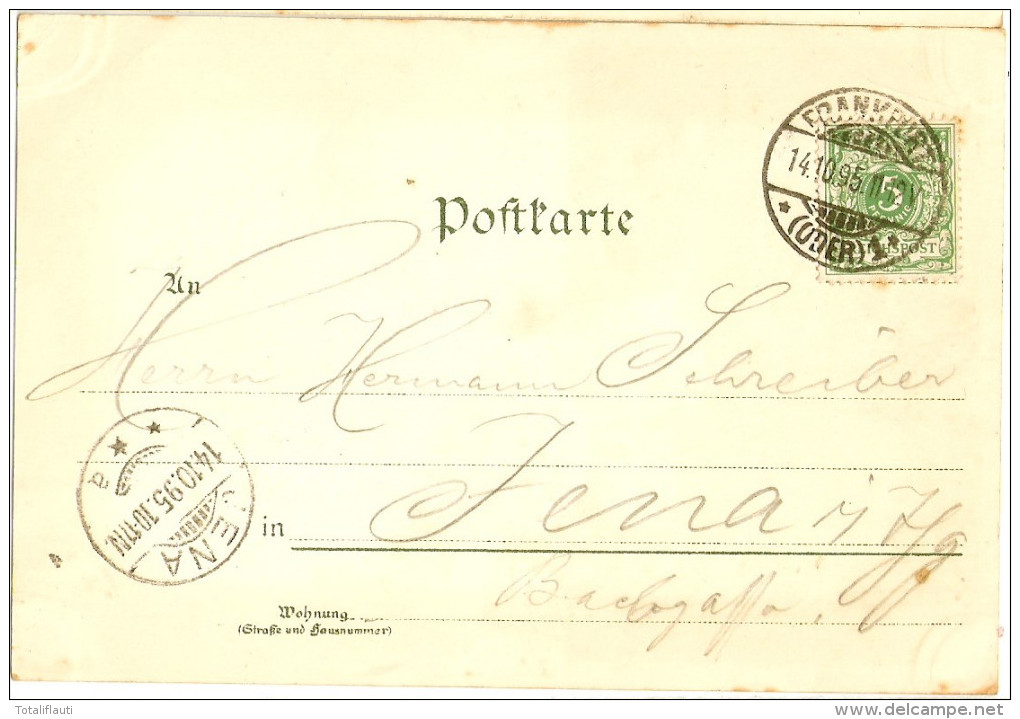 FRANKFURT
14.10.95. 11-12V
* (ODER) 1 *
5
PFENNIG
REICHSPOST
Postkarte
An
Herrn Hermann Schreiber
14.10.95.10-11N.
a
JENA
in Jena i/Thg
Wohnung
(Straße und Hausnummer)
Totaliflauti
www.delcampe.net